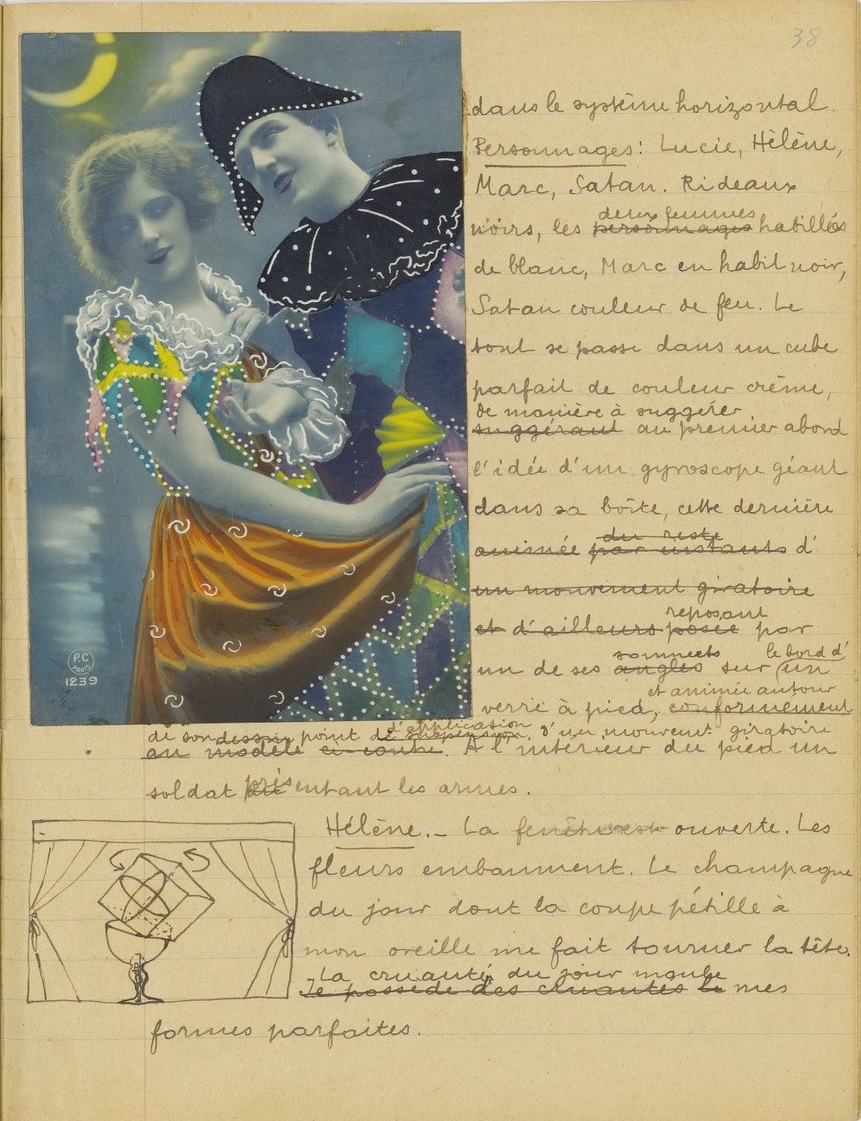 38
dans le système horizontal.
Personnages: Lucie, Hélène,
Marc, Satan. Rideaux
deux femmes
noirs, les personnages habillées
de blanc, Marc en habit noir,
Satan couleur de feu. Le
tout se passe dans un cube
parfait de couleur crème,
de manière à suggérer
suggérant au premier abord
l'idée d'un gyroscope géant
dans sa boîte, cette dernière
du reste
animée par instants d'
un mouvement giratoire
reposant
et d'ailleurs posée par
sommets le bord d'
un de ses angles sur un
et animée autour
verre à pied, conformément
d'application
de son dessin point de suspension. d'un mouvent. giratoire
au modèle ci-contre. A l'intérieur du pied un
soldat présentant les armes.
Hélène. - La fenêtre est ouverte. Les
fleurs embaument. Le champagne
du jour dont la coupe pétille à
mon oreille me fait tourner la tête.
La cruauté du jour moule
Je possède des cruautés le mes
formes parfaites.
P.C
PARIS
1239